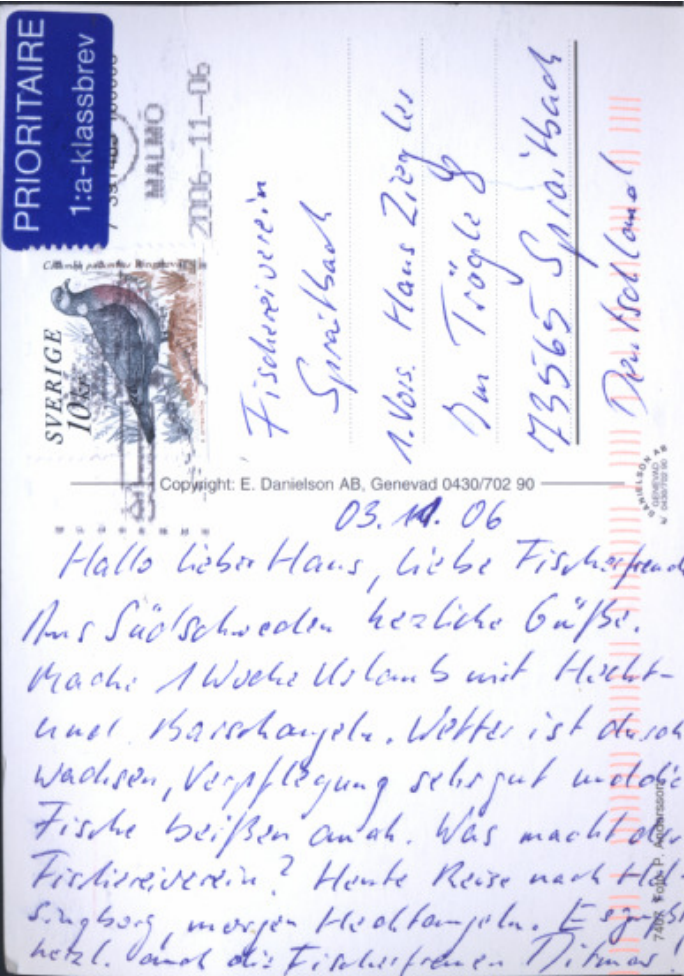 PRIORITAIRE
1:a-klassbrev
MALMÖ
2006-11-06
SVERIGE
10 kr
Fischereiverein
Spraitbach
1. Vors. Hans Ziegler
Im Trögle 8
73565 Spraitbach
Deutschland
Copyright: E. Danielson AB, Genevad 0430/702 90
DANIELSON
GENEVAD
0430/702 90
03.11.06
Hallo lieber Hans, liebe Fischerfreund
Aus Südschweden hezliche Güße.
Mache 1 Woche Urlaub mit Hecht-
und Barschangeln. Wetter ist durch
wachsen, Verpflegung sehr gut und die
Fische beißen auch. Was macht der
Fischereiverein? Heute Reise nach Hel-
singborg, morgen Hechtangeln. Es grüßt
herzl. auch die Fischerfrauen Ditmar
Foto: P. Andersson